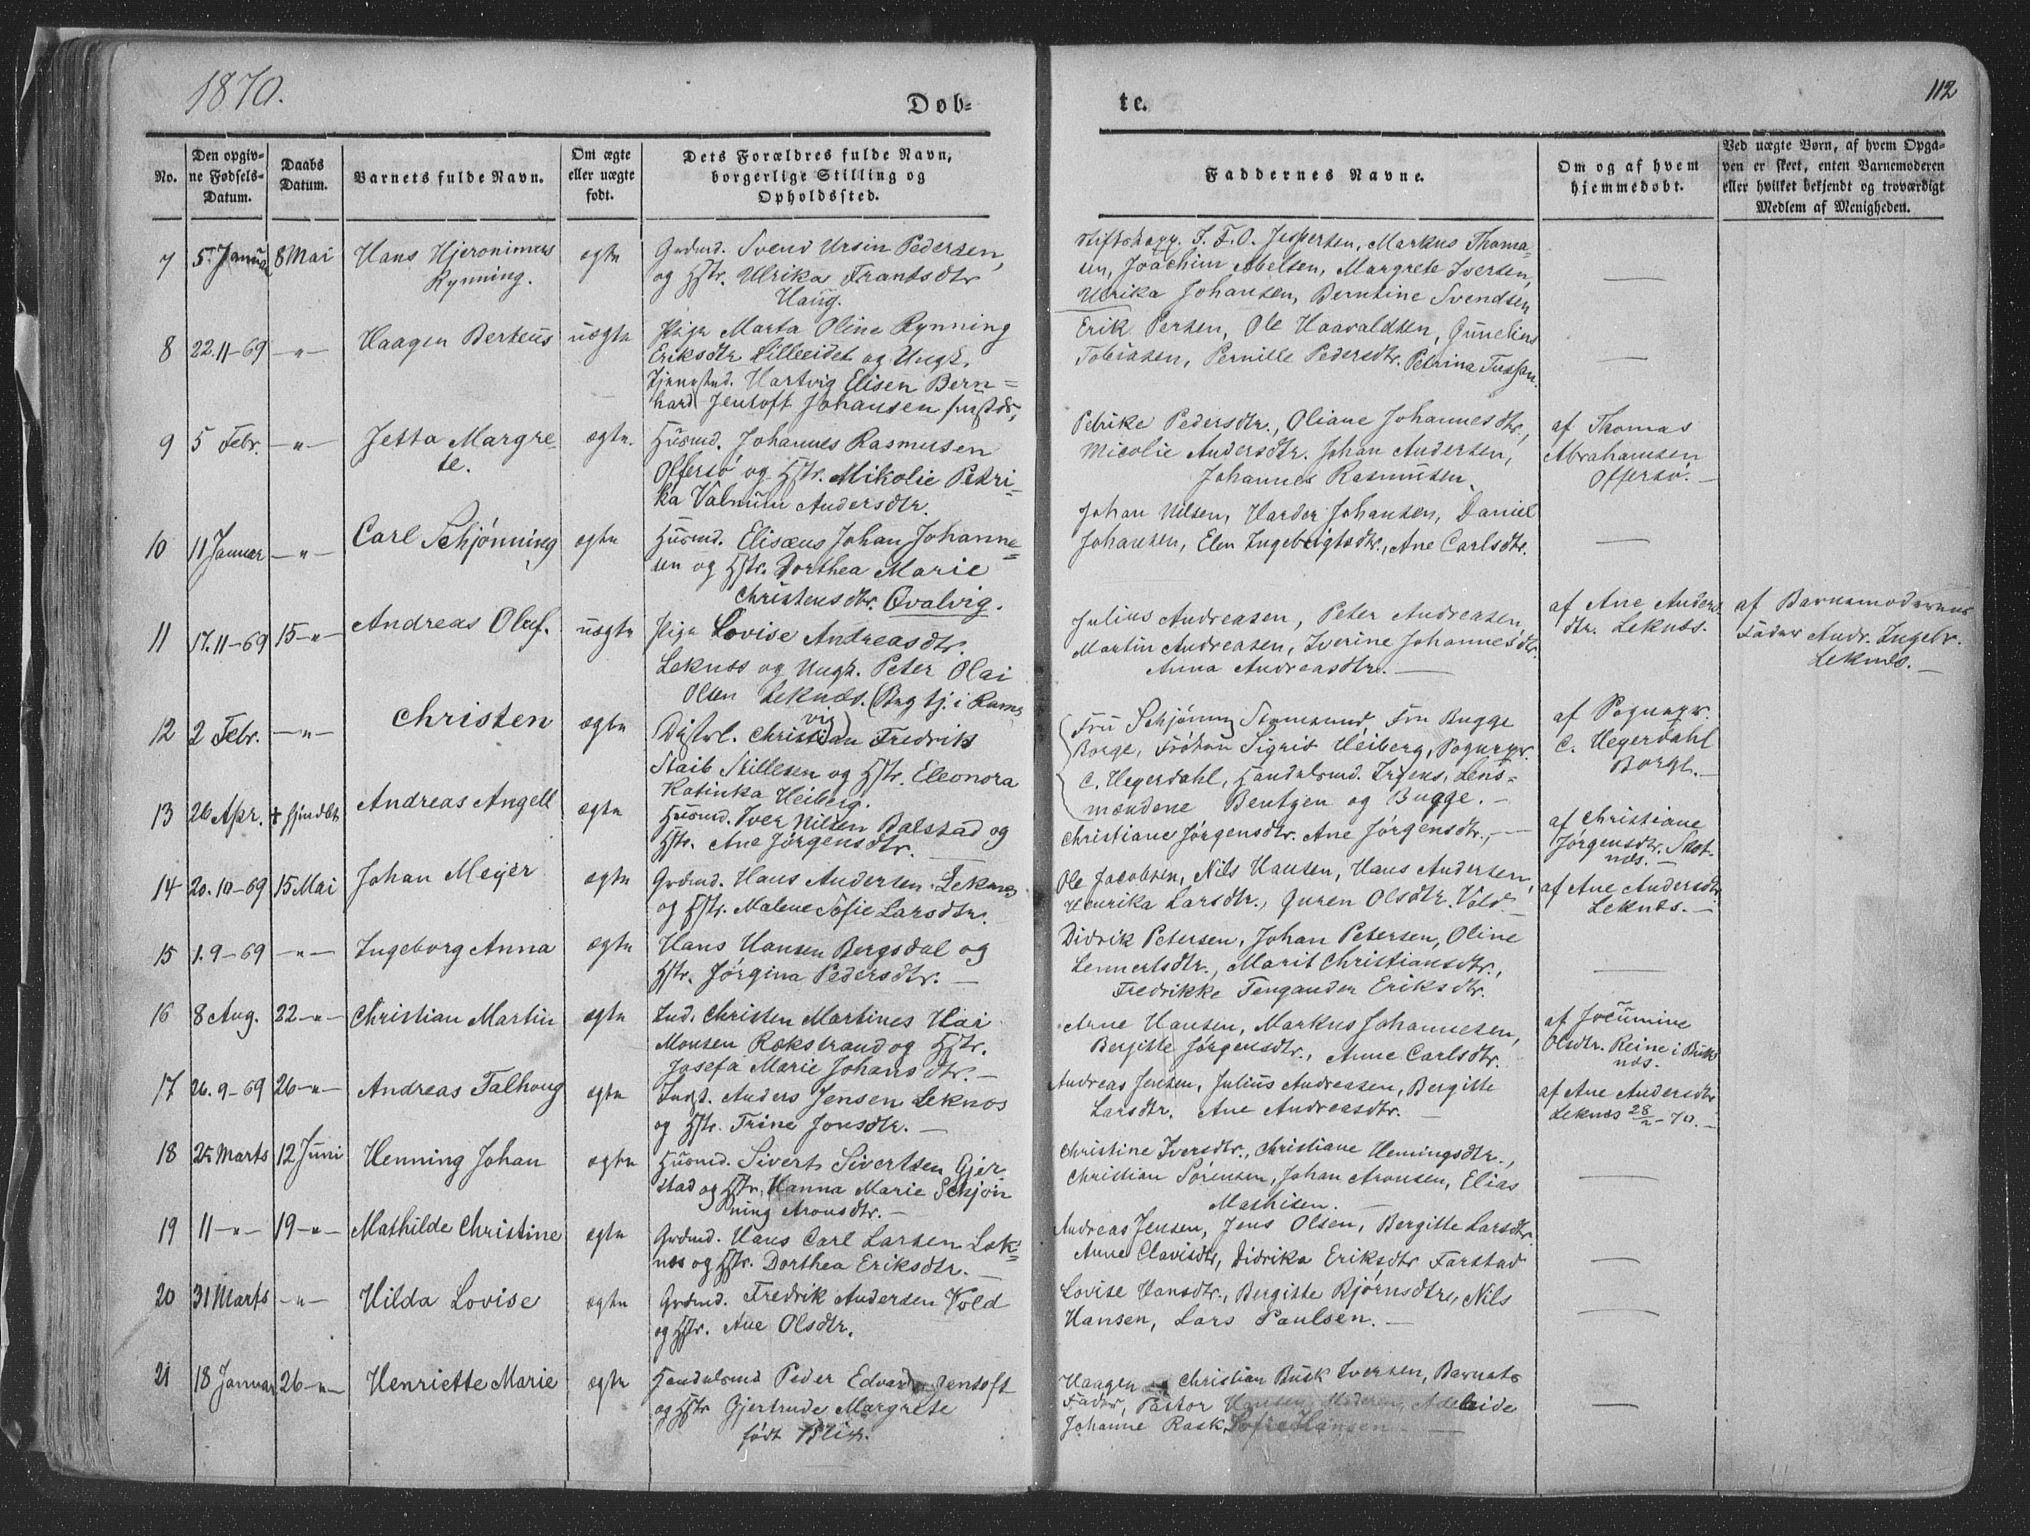 1870.
Døb-
te.
112
No.
Den opgiv-
ne Fødsels-
Datum.
Daabs
Datum.
Barnets fulde Navn.
Om ægte
eller uægte
født.
Dets Forældres fulde Navn,
borgerlige Stilling og
Opholdssted.
Faddernes Navne.
Om og af hvem
hjemmedøbt.
Ved uægte Børn, af hvem Opga-
ven er skeet, enten Barnemoderen
eller hvilket bekjendt og troværdigt
Medlem af Menigheden.
7 5 Januar 8 Mai Hans Hjeronimus
Rynning.
ægte
Grdmd. Svend Ursin Pedersen,
og Hstr. Ulrika Frantsdtr
Haug.
Stiftskapp. J. F. O. Jespersen, Markus Thoma-
sen, Joachim Abelsen, Margrete Iversen,
Ulrika Johansen, Berntine Svendsen
8 22.11-69 -"- Haagen Berteus uægte
Pige Marta Oline Rynning
Eriksdtr Lilleeidet og Ungk.
Tjenestud. Hartvig Elisen Bern=
hard Jentoft Johansen
Erik Persen, Ole Haavaldsen,
Tobiasen, Pernille Pedersdtr. Petrina
9 5 Febr. -"- Jetta Margre-
te.
ægte.
Husmd. Johannes Rasmusen
Offersø og Hstr. Mikolie Petri-
ka Valnum Andersdtr.
Petrike Pedersdtr., Oliane Johannesdtr,
Micolie Andersdtr. Johan Andersen,
Johannes Rasmusen
af Thomas
Abrahamsen
Offersø. -
10 11 Januar -"- Carl Schjønning ægte
Husmd. Elisæus Johan Johanne=
sen og Hstr. Dorthea Marie
Christensdtr. Qvalvig.
Johan Nilsen, Harder Johansen, Daniel
Johansen, Elen Ingebrigtsdtr., Ane Carlsdtr.
11 17.11-69 15-"- Andreas Oluf. uægte
Pige Lovise Andreasdtr.
Leknæs og Ungk. Peter Olai
Olsen Leknæs.
Julius Andreasen, Peter Andreasen,
Martin Andreasen, Iverine Johannesdtr.
Anna Andreasdtr. -
af Ane Anders
dtr. Leknæs.
af Barnemoderens
Fader Andr. Ingebr.
Leknæs. -
12 2 Febr. -"- Christen ægte
Distrl. Christian Fredrik
Staib Tillesen og Hstr. Eleonora
Katinka Heiberg.
Fru Schjønning Stamsund, Fru Bugge
Borge, Frøken Sigrid Heiberg, Sognepr.
C. Hegerdahl, Handelsmd. Irgens, Lens-
mændene Bentzen og Bugge. -
af Sognepr.
C. Hegerdahl
Borge. -
13 26 Apr. Andreas Angell ægte
Husmd. Iver Nilsen Balstad og
Hstr. Ane Jørgensdtr.
Christiane Jørgensdtr. Ane Jørgensdtr., -
af Christiane
Jørgensdtr.
14 20.10-69 15 Mai Johan Meyer ægte
Grdmd. Hans Andersen Leknæs
og Hstr. Malene Sofie Larsdtr.
Ole Jacobsen, Nils Hansen, Hans Andersen,
Henrika Larsdtr., Guren Olsdtr. Vold -
af Ane Andersdtr
Leknæs. -
15 1.9-69 -"- Ingeborg Anna ægte
Hans Hansen Bergsdal og
Hstr. Jørgina Pedersdtr. -
Didrik Petersen, Johan Petersen, Oline
Lennertsdtr., Marit Christiansdtr.,
Fredrikke Tengander Eriksdtr.
16 8 Aug. 22-"- Christian Martin ægte
Ind. Christen Martines Kai
Monsen Rækstrand og Hstr.
Josefa Marie Johansdtr. -
Arne Hansen, Markus Johannesen,
Bergitte Jørgensdtr., Anne Carlsdtr.
af Jocumine
Olsdtr. Reine i Buks
næs.
17 26.9-69 26-"- Andreas Falhoug ægte
Indst. Anders Jensen Leknæs
og Hstr. Trine Jonsdtr. -
Andreas Jensen, Julius Andreasen, Bergitte
Larsdtr. Ane Andreasdtr. -
af Ane Andersdtr
Leknæs 28/2-70. -
18 25 Marts 12 Juni Henning Johan ægte
Husmd. Sivert Sivertsen Gjer
stad og Hstr. Hanna Marie Schjøn
ning Aronsdtr. -
Christine Iversdtr., Christiane Hemingsdtr.,
Christian Sørensen, Johan Aronsen, Elias
Mathisen. -
19 11-"- 19-"- Mathilde Christine ægte
Grdmd. Hans Carl Larsen Lek-
næs og Hstr. Dorthea Eriksdtr. -
Andreas Jensen, Jens Olsen, Bergitte Larsdtr.
Anne Clavisdtr, Didrika Eriksdtr Farstad
20 31 Marts -"- Hilda Lovise ægte
Grdmd. Fredrik Andersen Vold
og Hstr. Ane Olsdtr.
Lovise Hansdtr., Bergitte Bjørnsdtr, Nils
Hansen, Lars Paulsen. -
21 18 Januar 26-"- Henriette Marie ægte
Handelsmd Peder Edvard Jentoft
og Hstr Gjertrude Margrete
født
Haagen og Christian Busk Iversen, Barnets
Fader, Pastor Hansen, Moderen, Adelaide
Johanne Rask, Sofie Hansen -